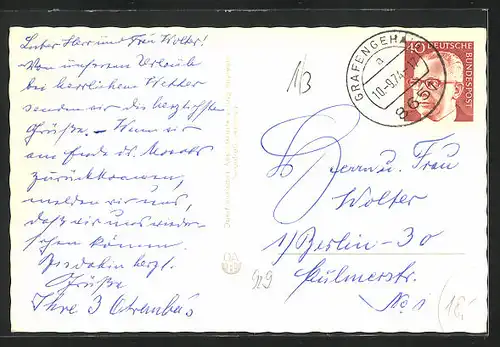 Lieber Herr und Frau Wolter!
Von unserem Urlaube
bei herrlichem Wetter
senden wir die herzlichsten
Grüße. Wenn wir
am Ende des Monats
zurückkommen,
melden wir uns,
daß wir uns wieder-
sehen können.
Bis dahin herzl.
Grüße
Ihre 3
1/3
GRAFENGEHAIG
a
10.-9.74-17
8651
40
DEUTSCHE
BUNDESPOST
Herrn u. Frau
Wolter
1/Berlin-30
Kulmerstr.
No. 1